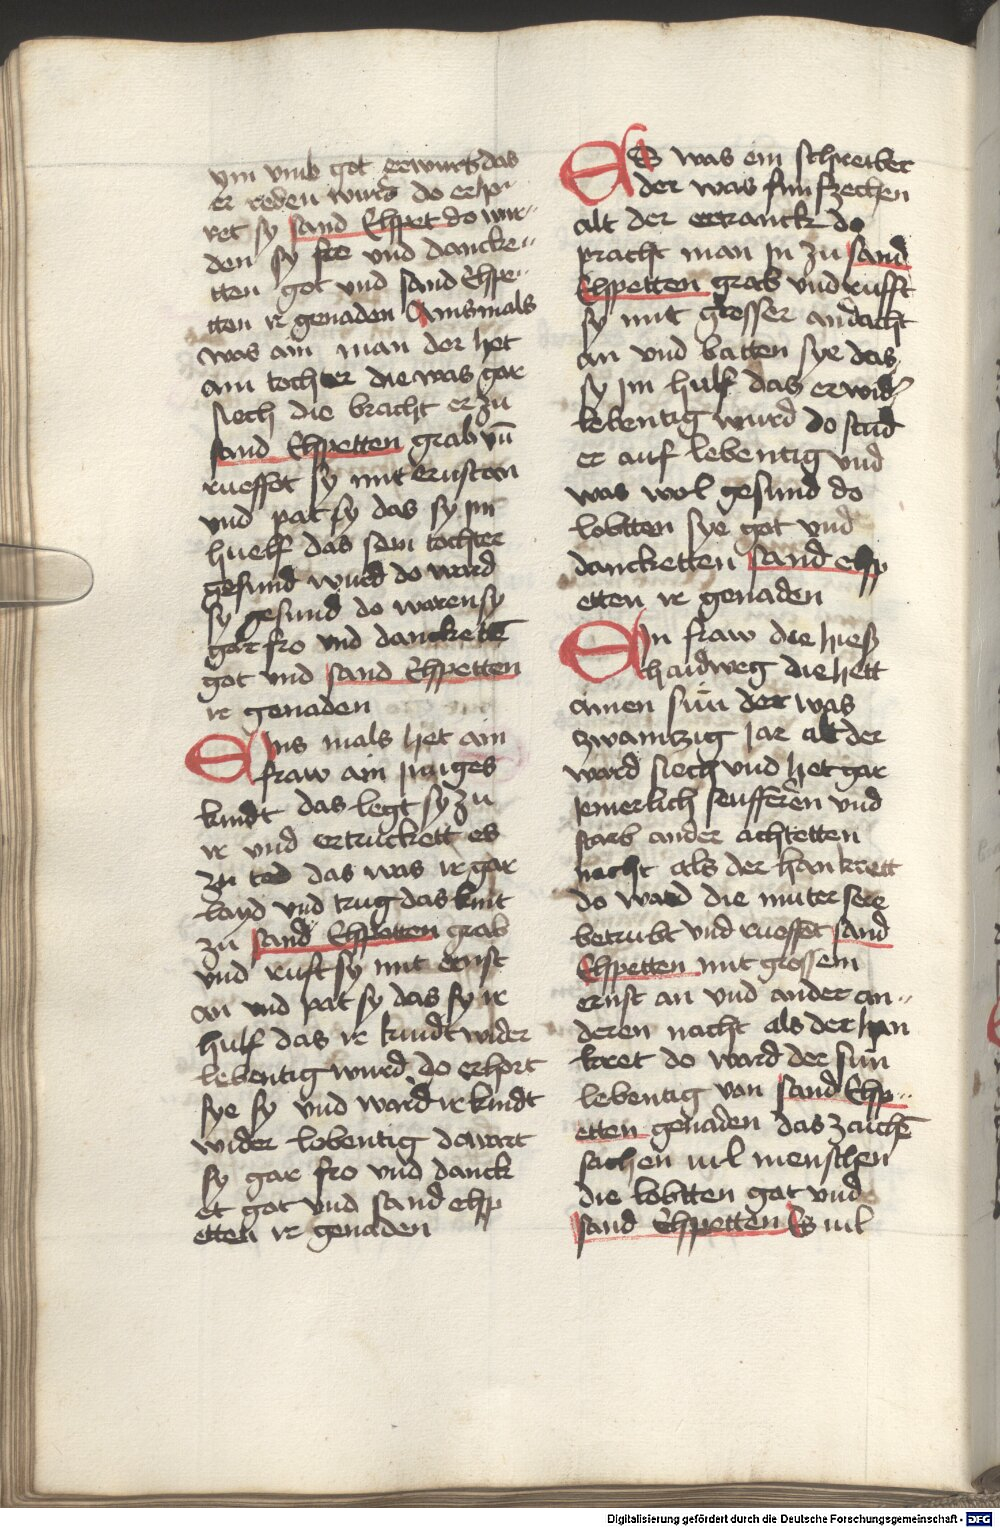 ym vmb got erwurb das
er reden wurd do erho
ret sy sand Elspet do wur
den sy fro vnd dancke
tten got vnd sand Elspe
tten ir genaden Ainsmals
was ain man der het
ain tochter die was gar
siech die bracht er zu
sand Elspetten grab vn̄
rueffet sy mit ernst an
vnd pat sy das sy im
huelf das sein tochter
gesund wurd do ward
sy gesund do waren sy
gar fro vnd danckett
got vnd sand Elspetten
ir genaden
Ains mals het ain
fraw ain junges
kindt das legt sy zu
ir vnd ertruckett es
zu tod das was ir gar
layd vnd trug das kint
zu sand Elspetten grab
vnd ruft sy mit ernst
an vnd pat sy das sy ir
hulf das ir kindt wider
lebentig wurd do erhort
sye sy vnd ward ir kindt
wider lebentig do wart
sy gar fro vnd danck
et got vnd sand elsp
etten ir genaden
Es was ein schreiber
der was funfzechen
alt der ertranck do
pracht man in zu sand
Elspetten grab vnd rufft
sy mit grosser andacht
an vnd batten sye das
sy im hulf das er wid
lebentig wurd do stud
er auf lebentig vnd
was wol gesund do
lobtten sye got vnd
dancketten sand elsp
etten ir genaden
Ein fraw die hiesz
haidweg die hett
ainen sun der was
zwaintzig jar alt der
ward siech vnd het gar
jemerlich seufferen vnd
starb an der achtetten
nacht als der han kreet
do ward die muter sere
betrubt vnd rueffet sand
Elspetten mit grossem
ernst an vnd an der an
deren nacht als der han
kreet do ward der sun
lebentig von sand Elsp
etten genaden das zaichē
sachen uil menschen
die lobtten got vnd
sand Elspetten Es uil
Digitalisierung gefördert durch die Deutsche Forschungsgemeinschaft - DFG